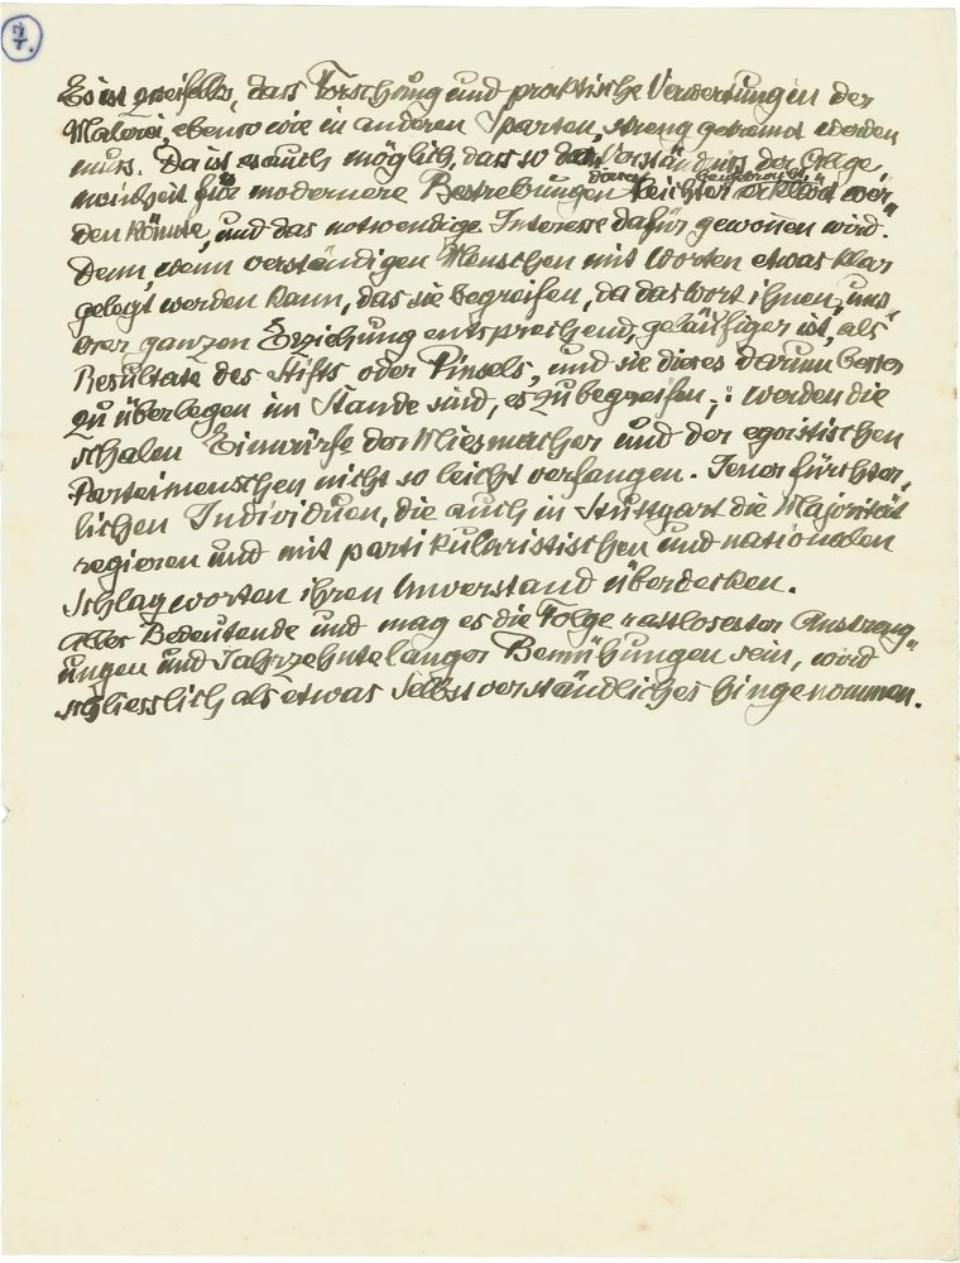 7.
Es ist zweifellos, dass Forschung und praktische Verwertung in der
Malerei, ebenso wie in anderen Sparten, streng getrennt werden
muss. Da ist es auch möglich, dass so das Verständniss der Allge„
meinheit für modernere Bestrebungen leichter erklärt wer„
beigebracht
den könnte, und das notwendige Interesse dafür gewonnen wird.
Denn, wenn verständigen Menschen mit Worten etwas klar
gelegt werden kann, das sie begreifen, da das Wort ihnen, uns„
erer ganzen Erziehung entsprechend, geläufiger ist, als
Resultate des Stifts oder Pinsels, und sie dieses darum besser
zu überlegen im Stande sind, es zu begreifen,: werden die
schalen Einwürfe der Miesmacher und der egoistischen
Parteimenschen nicht so leicht verfangen. Jener fürchter„
lichen Individuen, die auch in Stuttgart die Majorität
regieren und mit partikularistischen und nationalen
Schlagworten ihren Unverstand überdecken.
Alles Bedeutende und mag es die Folge rastlosester Anstreng„
ungen und Jahrzehntelanger Bemühungen sein, wird
schliesslich als etwas Selbstverständliches hingenommen.